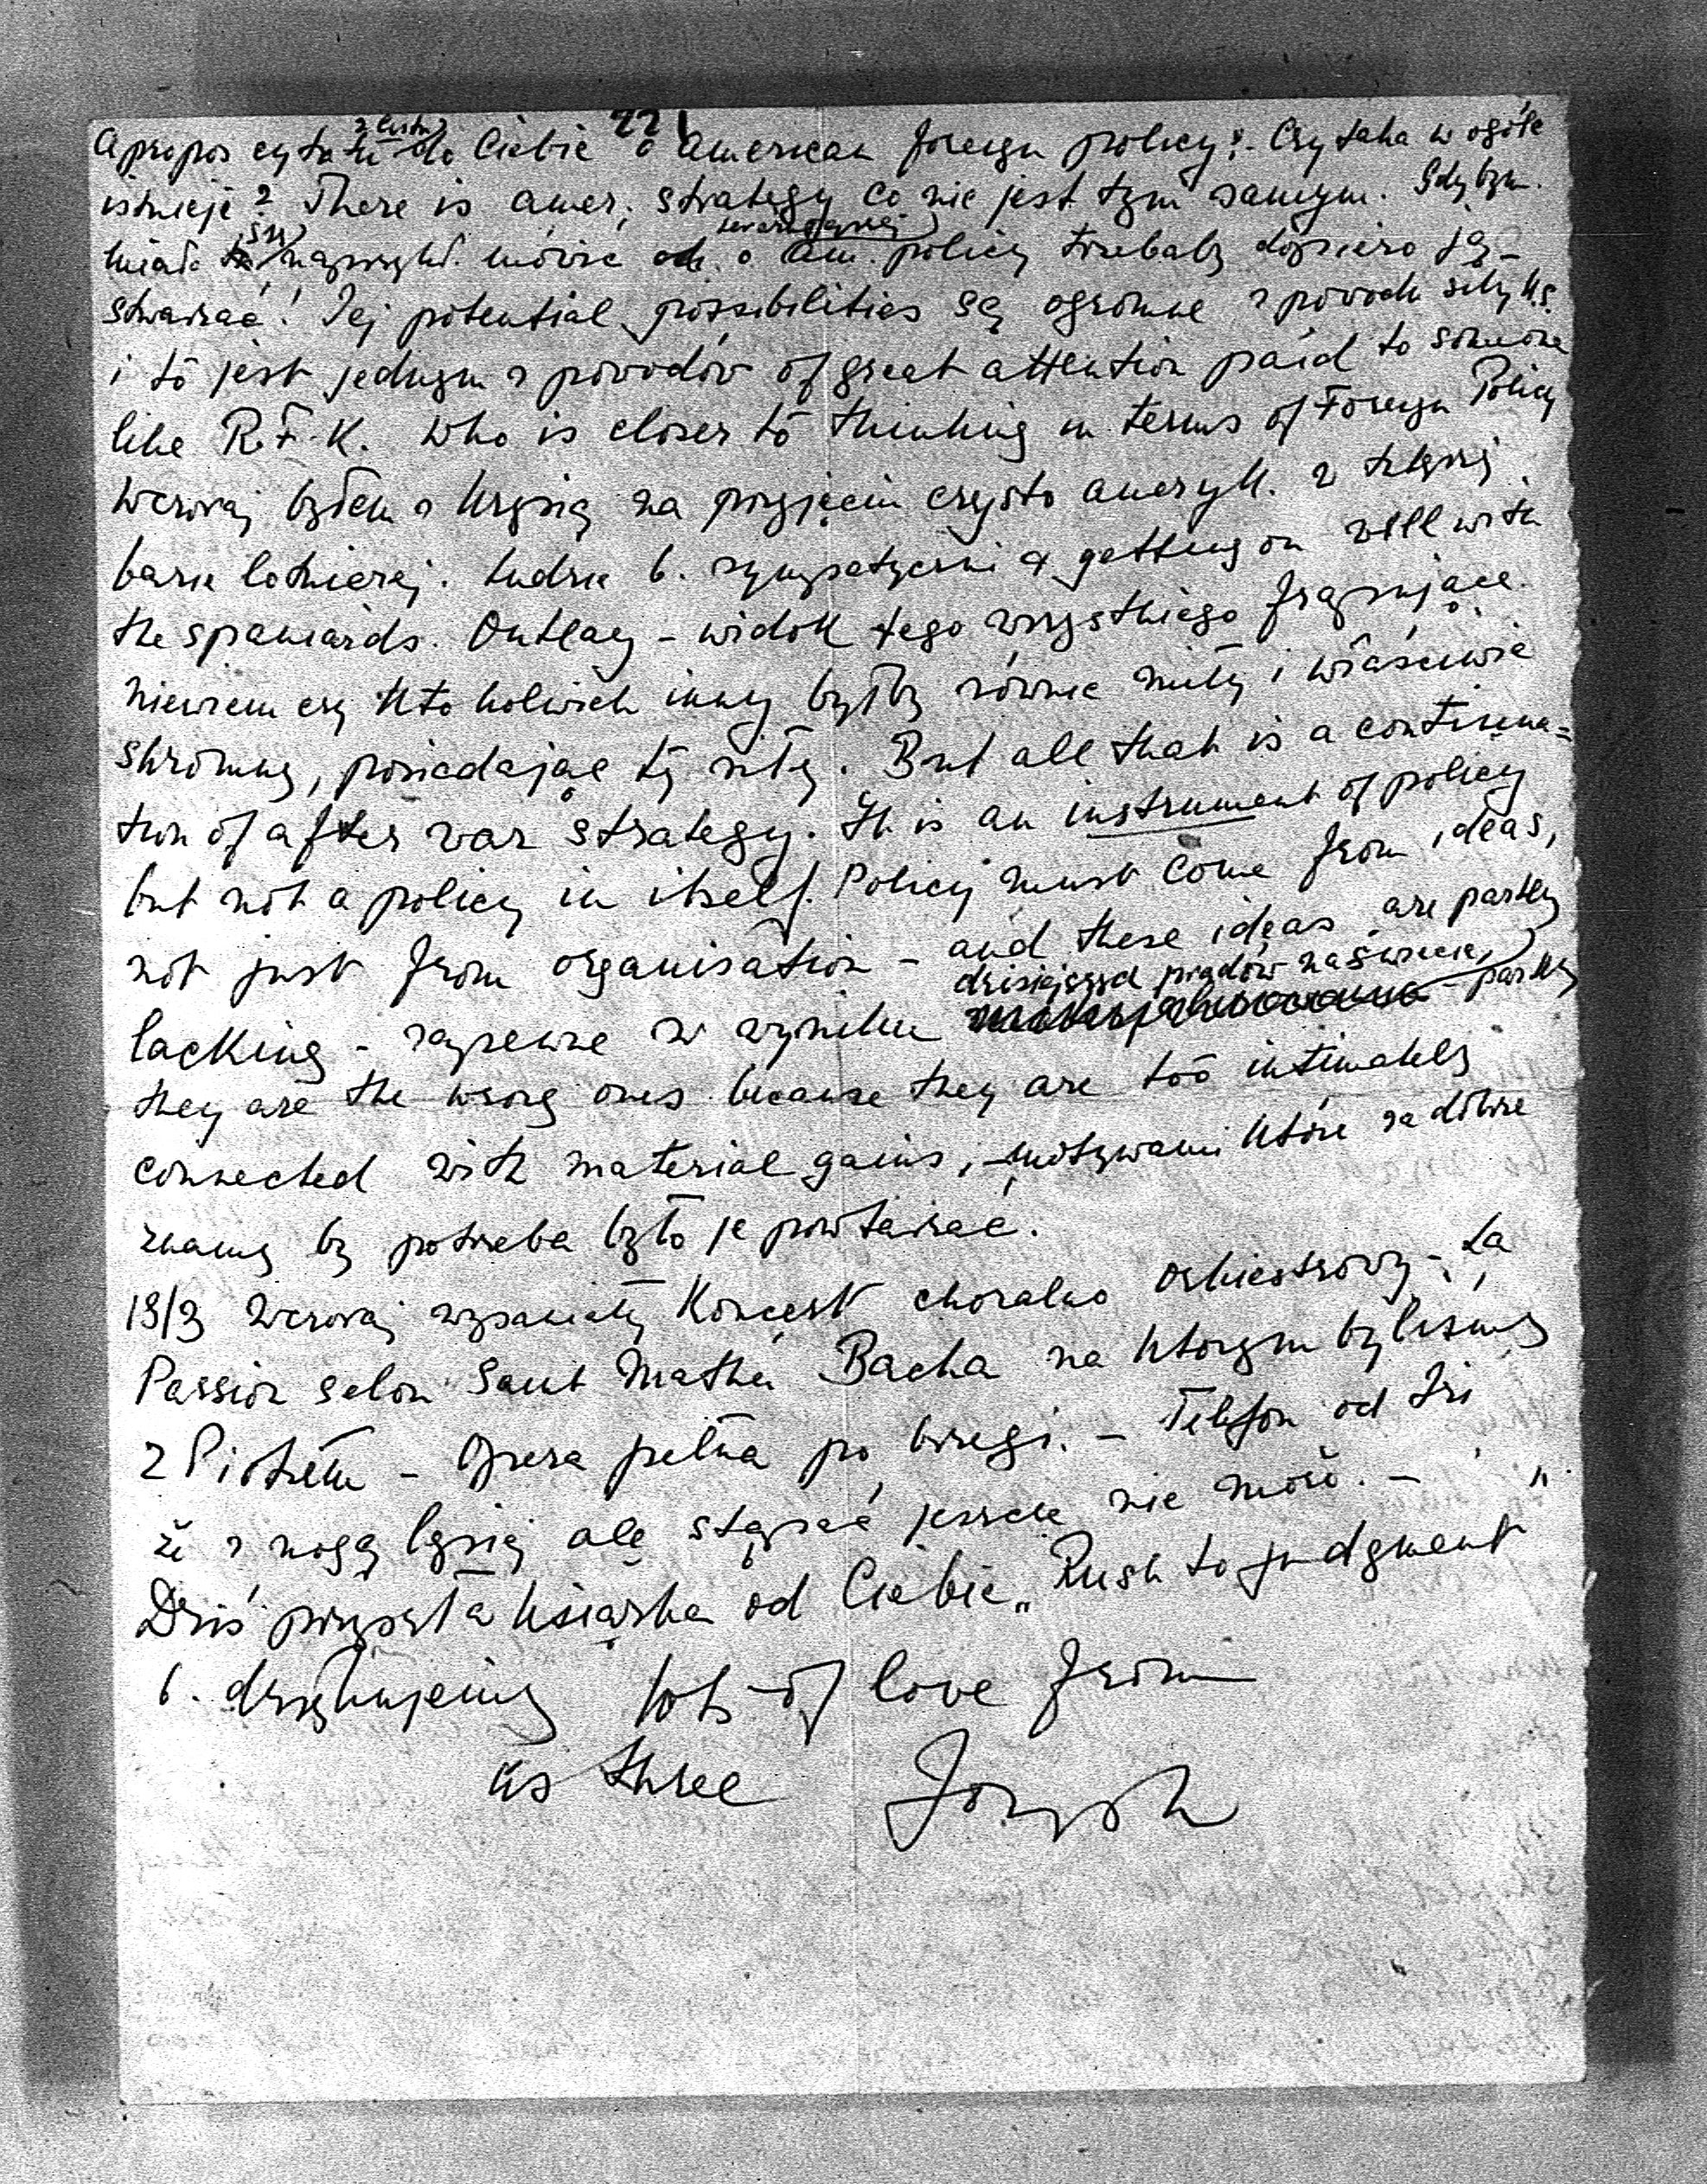 221
z listu
Apropos cytatu do Ciebie o American foreign policy?. Czy taka w ogóle
istnieje? There is amer. strategy co nie jest tym samym. Gdybym
miał się naprzykł. mówić o am. policy trzebaby dopiero ją
stwarzać! Jej potential possibilities są ogromne z powodu siły U.S.
i to jest jednym z powodów of great attention paid to someone
like R.F.K. who is closer to thinking in terms of Foreign Policy
Wczoraj byłem z Krysią na przyjęciu czysto ameryk. z tutejszej
bazie lotniczej. Ludzie b. sympatyczni & getting on well with
the spaniards. Outlay – widok tego wszystkiego
Niewiem czy ktokolwiek inny byłby równie miły i właściwie
skromny, posiadając tę siłę. But all that is a continua=
tion of after war strategy. It is an instrument of policy
but not a policy in itself. Policy must come from ideas,
not just from organisation – and these ideas are partly
dzisiejszych prądów na świecie,
lacking – zapewne w wyniku – partly
they are the wrong ones because they are too intimately
connected with material gains, motywami które za dobrze
znamy by potrzeba było je powtarzać.
19/3 Wczoraj wspaniały Koncert choralno orkiestrowy – La
Passion selon Saint Mathieu Bacha na ktorym bylismy
z Piotrem – Opera pełna po brzegi. – Telefon od Izi
że z nogą lepiej ale stąpać jeszcze nie może. –
Dziś przyszła książka od Ciebie „Rush to judgment"
b. dziękujemy lots of love from
us three Józek